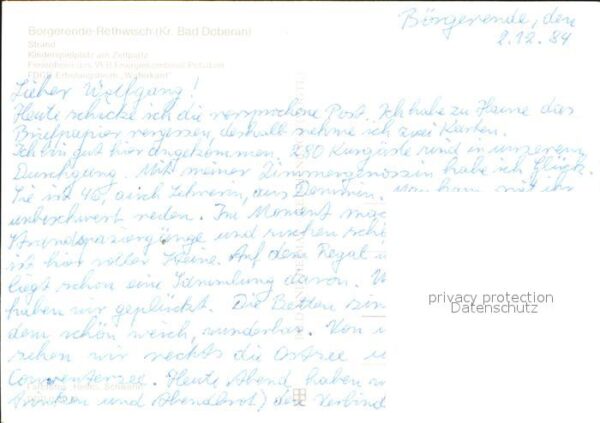 Börgerende, den
2.12.84
Börgerende-Rethwisch (Kr. Bad Doberan)
Strand
Kinderspielplatz am Zeltplatz
Ferienheim des VEB
FDGB-Erholungsheim "Waterkant"
Lieber Wolfgang!
Heute schicke ich die versprochene Post. Ich habe zu Hause das
Briefpapier vergessen, deshalb nehme ich zwei Karten.
Ich bin gut hier angekommen, 280 Kurgäste sind in unserem
Durchgang. Mit meiner Zimmergenossin habe ich Glück.
Sie ist 46, auch Lehrerin, aus Demmin. man kann mit ihr
unbeschwert reden. Im Moment mac
Strandspaziergänge und
ist hier voller Steine. Auf dem Regal
liegt schon eine Sammlung davon.
haben wir gepflückt. Die Betten sin
dem schön weich, wunderbar. Von
sehen wir rechts die Ostsee u
Conventersee. Heute Abend haben
Trinken und Abendbrot) den Verbind
privacy protection
Datenschutz